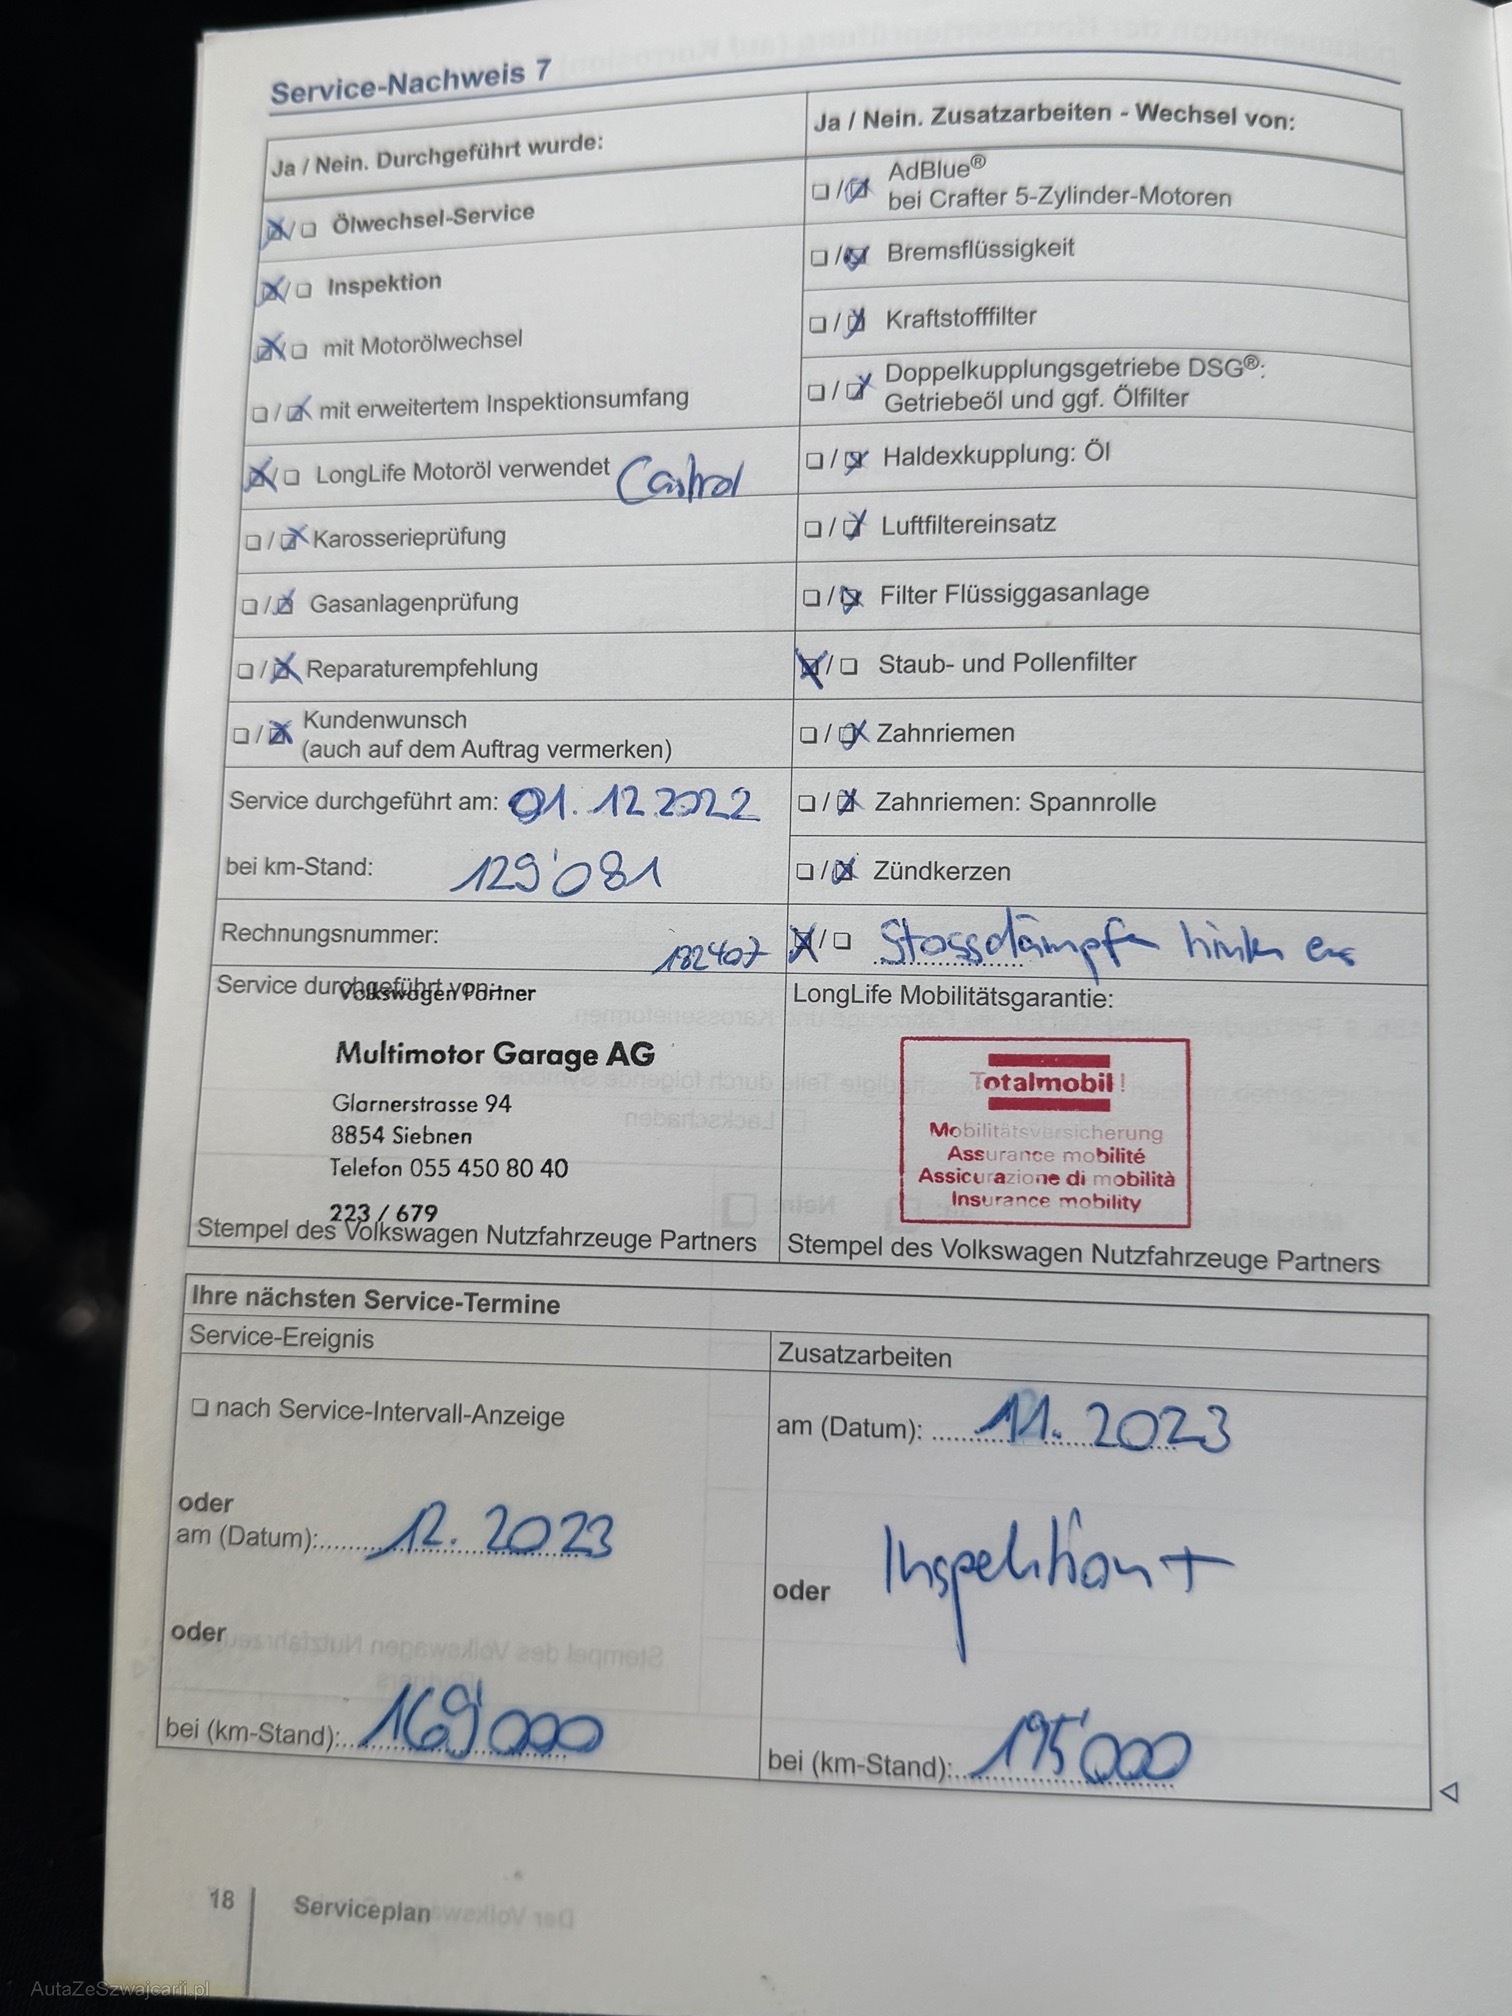 Service-Nachweis 7
Ja / Nein. Durchgeführt wurde:
☒/☐ Ölwechsel-Service
☒/☐ Inspektion
☒/☐ mit Motorölwechsel
☐/☒ mit erweitertem Inspektionsumfang
☒/☐ LongLife Motoröl verwendet Castrol
☐/☒ Karosserieprüfung
☐/☒ Gasanlagenprüfung
☐/☒ Reparaturempfehlung
☐/☒ Kundenwunsch
(auch auf dem Auftrag vermerken)
Service durchgeführt am: 01.12.2022
bei km-Stand: 129'081
Rechnungsnummer: 182407
Service durchgeführt von:
Volkswagen Partner
Multimotor Garage AG
Glarnerstrasse 94
8854 Siebnen
Telefon 055 450 80 40
223 / 679
Stempel des Volkswagen Nutzfahrzeuge Partners
Ja / Nein. Zusatzarbeiten - Wechsel von:
☐/☒ AdBlue®
bei Crafter 5-Zylinder-Motoren
☐/☒ Bremsflüssigkeit
☐/☒ Kraftstofffilter
☐/☒ Doppelkupplungsgetriebe DSG®:
Getriebeöl und ggf. Ölfilter
☐/☒ Haldexkupplung: Öl
☐/☒ Luftfiltereinsatz
☐/☒ Filter Flüssiggasanlage
☒/☐ Staub- und Pollenfilter
☐/☒ Zahnriemen
☐/☒ Zahnriemen: Spannrolle
☐/☒ Zündkerzen
☒/☐ Stossdämpfer hinten
LongLife Mobilitätsgarantie:
Totalmobil!
Mobilitätsversicherung
Assurance mobilité
Assicurazione di mobilità
Insurance mobility
Stempel des Volkswagen Nutzfahrzeuge Partners
Ihre nächsten Service-Termine
Service-Ereignis
☐ nach Service-Intervall-Anzeige
oder
am (Datum): 12. 2023
oder
bei (km-Stand): 169'000
Zusatzarbeiten
am (Datum): 11. 2023
oder Inspektion +
bei (km-Stand): 195'000
18 Serviceplan
AutaZeSzwajcarii.pl